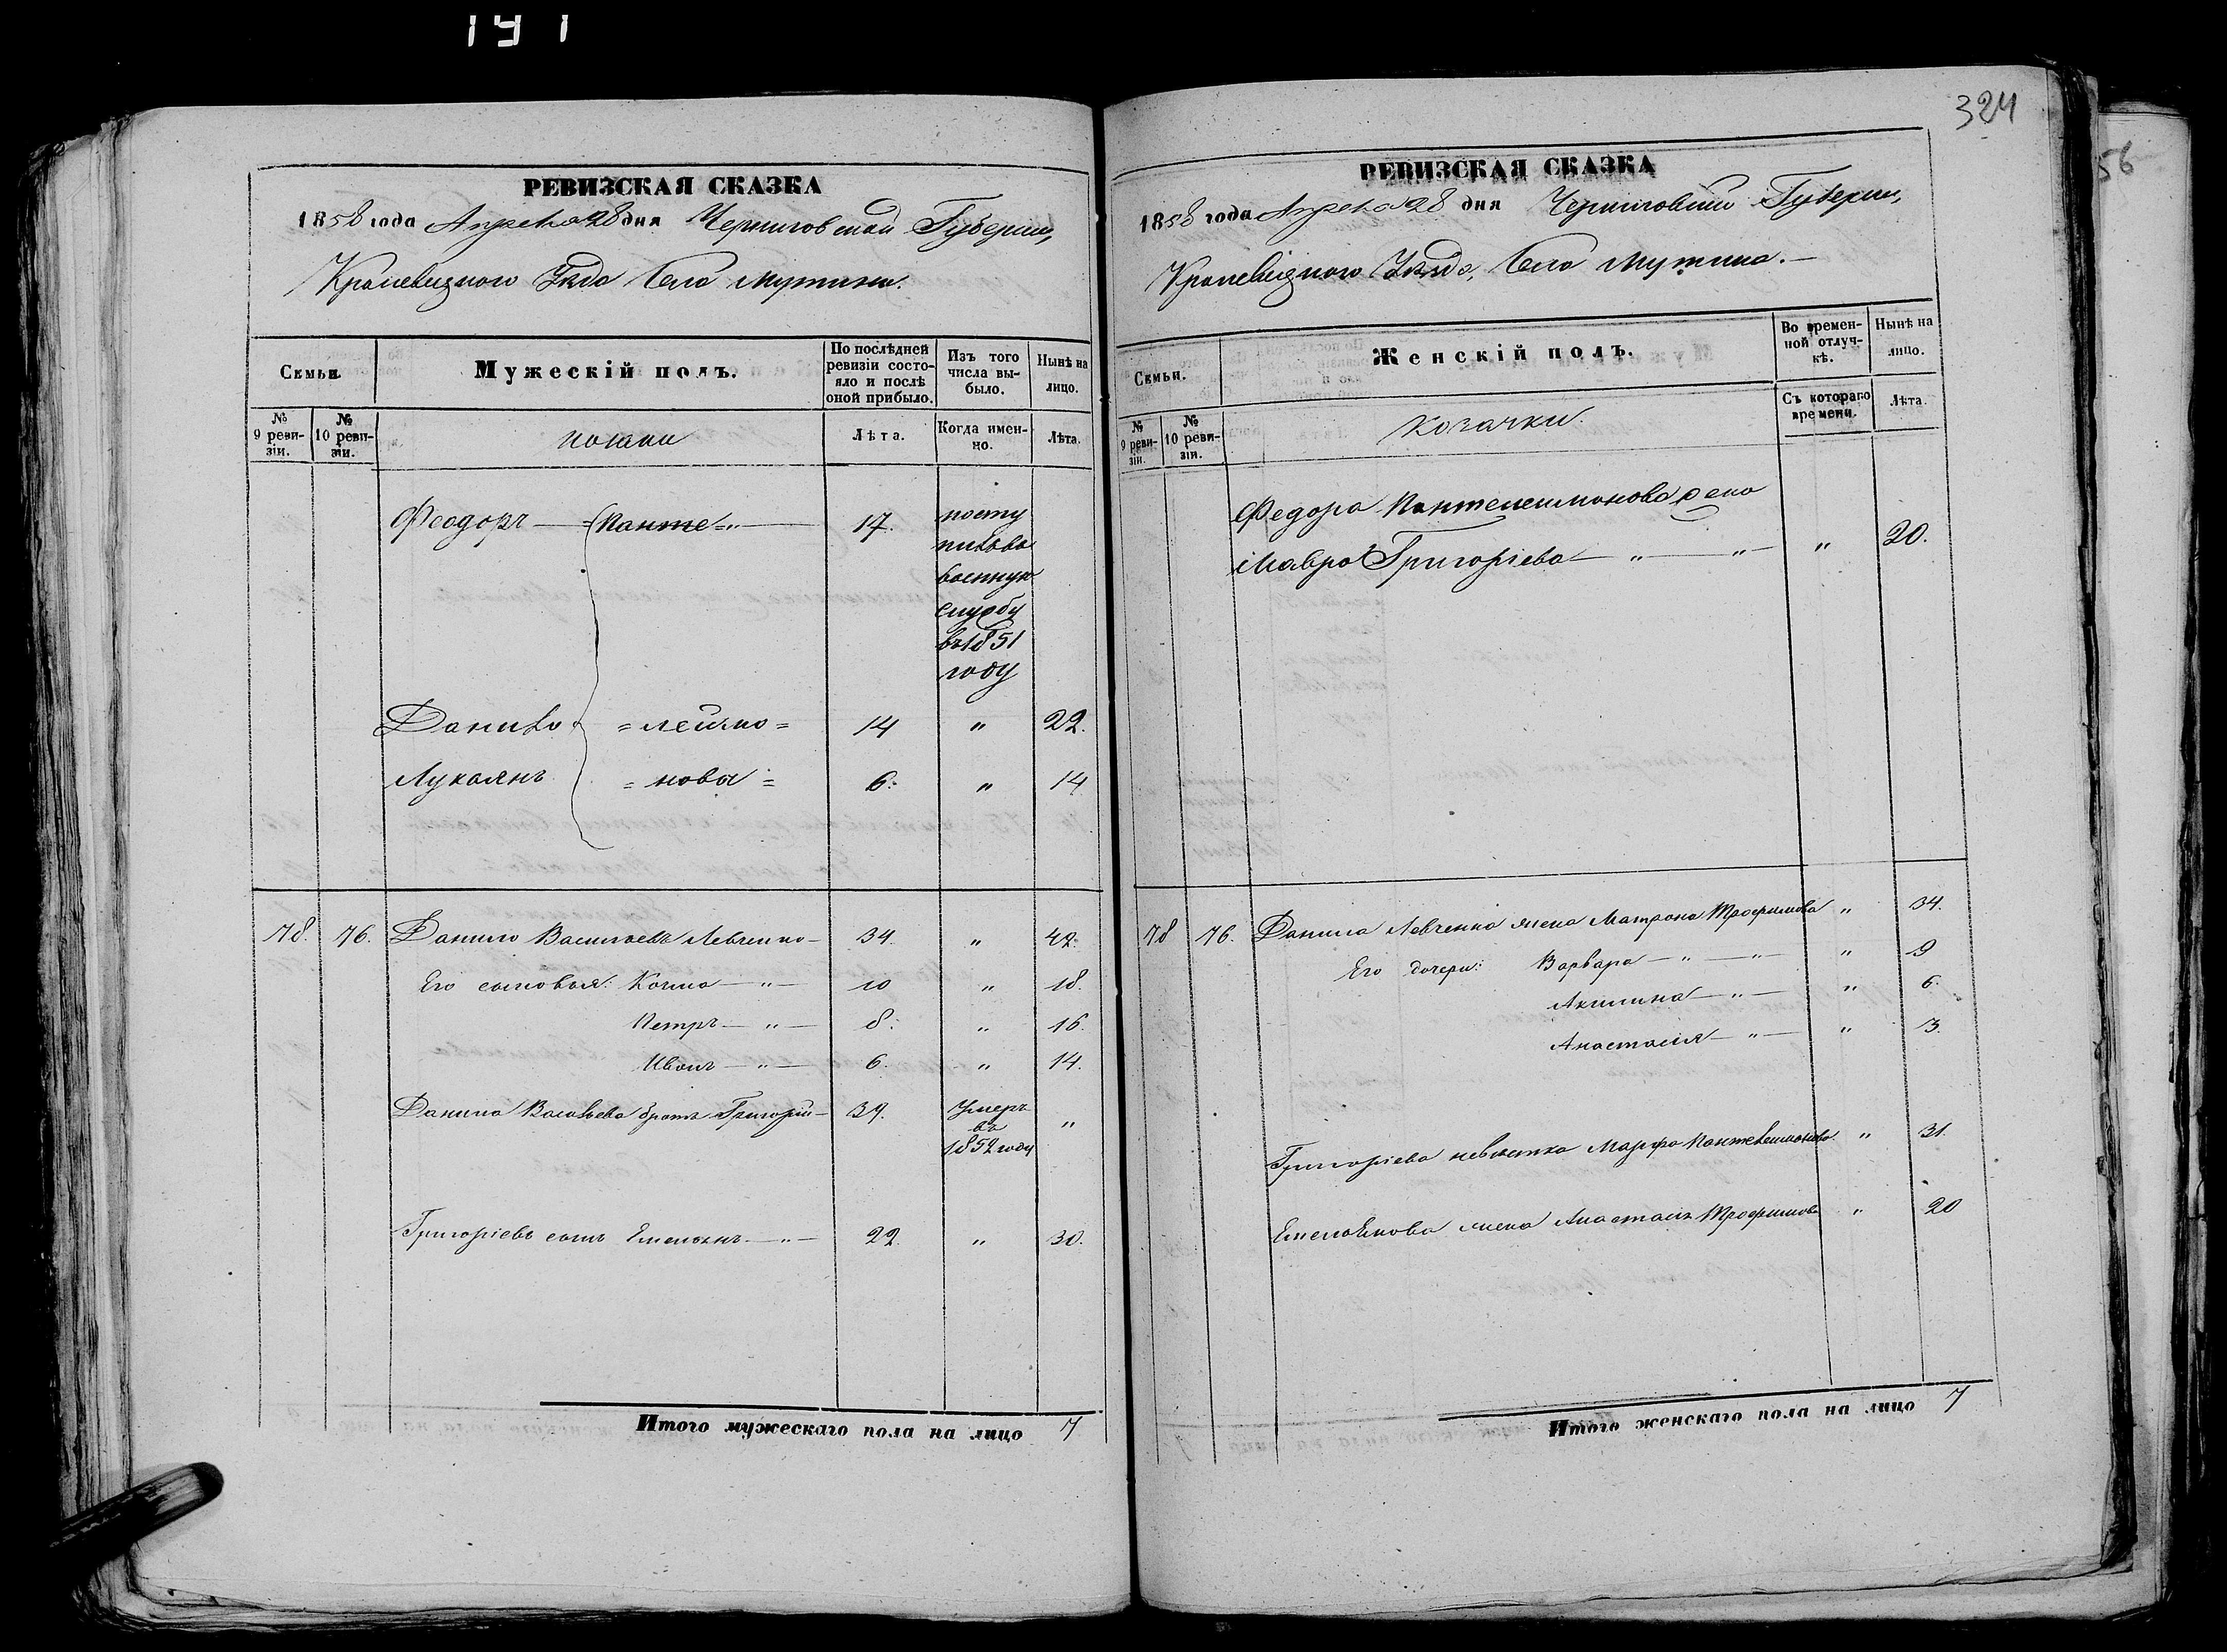 191
РЕВИЗСКАЯ СКАЗКА
1858 года Апреля 28 дня Черниговской Губерніи,
Кролевецкаго Уезда Села Мутина.
Семьи.
Мужескій полъ.
По послѣдней ревизіи состояло и послѣ оной прибыло.
Изъ того числа выбыло.
Нынѣ на лицо.
№ 9 ревизіи.
№ 10 ревизіи.
Лѣта.
Когда именно.
Лѣта.
Феодоръ — Панте=„ — 17. посту
пилъ въ
военную
службу
въ 1851
году
Данило =леймо= 14 „ 22.
Лукьянъ =новы= 6. „ 14
78. 76. Данило Васильевъ Левченко — 34. „ 42.
Его сыновья: Косма — „ — 10 „ 18.
Петръ — „ — 8. „ 16.
Иванъ — „ — 6. „ 14.
Данила Васильева братъ Григорій — 39. Умеръ
въ „
1852 году
Григоріевъ сынъ Емельянъ — „ — 22. „ 30.
Итого мужескаго пола на лицо 7
324
РЕВИЗСКАЯ СКАЗКА
1858 года Апреля 28 дня Черниговской Губерніи,
Кролевецкаго Уезда, Села Мутина. —
Семьи.
Женскій полъ.
Во временной отлучкѣ.
Нынѣ на лицо.
№ 9 ревизіи.
№ 10 ревизіи.
Козачки.
Съ котораго времени.
Лѣта.
Федора Пантелеимонова жена
Мавра Григоріева — „ — „ — „ 20.
78 76. Данила Левченка жена Матрона Трофимова „ 34.
Его дочери: Варвара — „ — „ — „ 9
Акилина — „ — „ 6.
Анастасія — „ — „ 3.
Григоріева невестка Марфа Пантелеимонова „ 31.
Емельянова жена Анастасія Трофимова „ 20
Итого женскаго пола на лицо 7
56